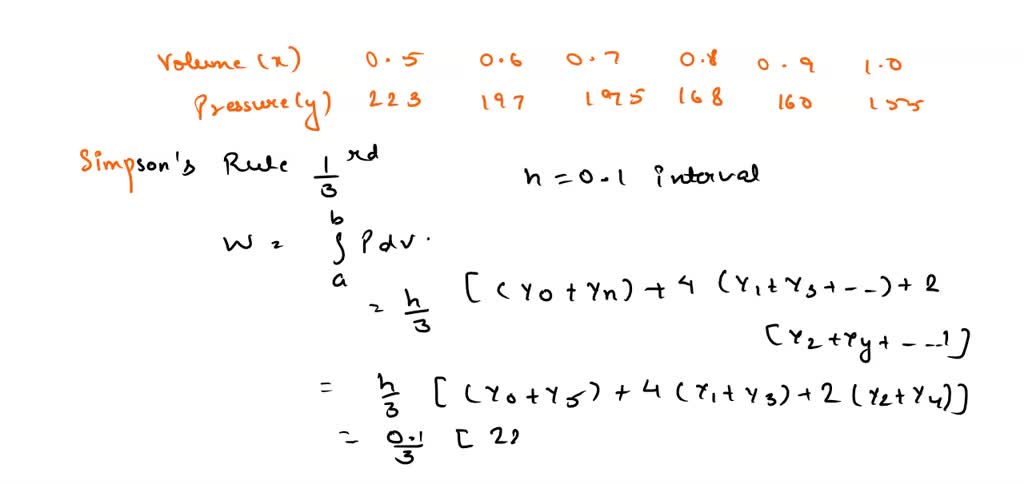 Volume (x) 0.5 0.6 0.7 0.8 0.9 1.0
Pressure(y) 223 197 1975 168 160 155
Simpson's Rule 1/3 rd h = 0.1 interval
W = ∫ₐᵇ P dv.
= h/3 [(Y0 + Yn) + 4 (Y1 + Y3 + --) + 2
[Y2 + Yy + ---]
= h/3 [(Y0 + Y5) + 4 (Y1 + Y3) + 2 (Y2 + Y4)]
= 0.1/3 [ 22